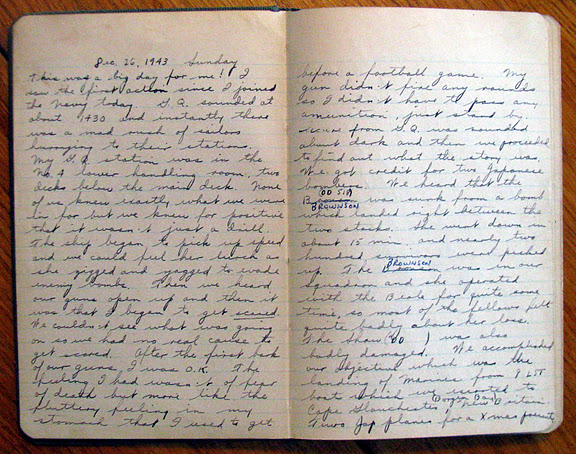 Dec. 26, 1943 Sunday
This was a big day for me! I
saw the first action since I joined
the Navy today. G.Q. sounded at
about 1430 and instantly there
was a mad rush of sailors
hurrying to their stations.
My G.Q station was in the
No. 4 lower handling room, two
decks below the main deck. None
of us knew exactly what we were
in for but we knew for positive
that it wasn't just a drill.
The ship began to pick up speed
and we could feel her lurch as
she zigged and zagged to evade
enemy bombs. Then we heard
our guns open up and then it
was that I began to get scared.
We couldn't see what was going
on so we had no real cause to
get scared. After the first bark
of our guns I was O.K. The
feeling I had wasn't of fear
of death but more like the
fluttery feeling in my
stomach that I used to get
before a football game. My
gun didn't fire any rounds
so I didn't have to pass any
amunition, just stand by
from G.Q. was sounded
about dark and then we proceeded
to find out what the story was.
We got credit for two Japanese
bombers. We heard that the
(DD 518)
BROWNSON
was sunk from a bomb
which landed right between the
two stacks. She went down in
about 15 min and nearly two
hundred were picked
BROWNSON
up. The was in our
Squadron and she operated
with the Beale for quite some
time, so most of the fellows felt
quite badly about her loss.
The Shaw (DD ) was also
badly damaged. We accomplished
our objective which was the
landing of Marines from 8 LST
boats which we escorted to
Borgen Bay
Cape Glouchester, New Britain.
Two Jap planes for a Xmas present